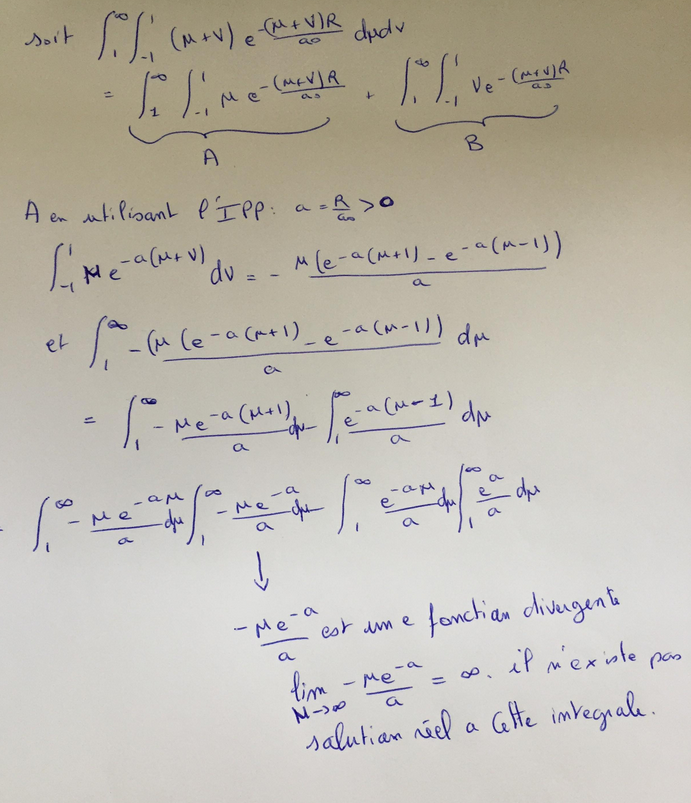 soit ∫₁^∞ ∫₋₁^1 (μ+ν) e^-(μ+ν)R/a₀ dμdν
= ∫₁^∞ ∫₋₁^1 μ e^-(μ+ν)R/a₀ + ∫₁^∞ ∫₋₁^1 ν e^-(μ+ν)R/a₀
A B
A en utilisant l'IPP: a = R/a₀ > 0
∫₋₁^1 μ e^-a(μ+ν) dν = - μ(e^-a(μ+1) - e^-a(μ-1))/a
et ∫₁^∞ -(μ(e^-a(μ+1) - e^-a(μ-1))/a dμ
= ∫₁^∞ - μe^-a(μ+1)/a dμ ∫₁^∞ e^-a(μ-1)/a dμ
- ∫₁^∞ - μe^-aμ/a dμ ∫₁^∞ - μe^-a/a dμ ∫₁^∞ e^-aμ/a dμ ∫₁^∞ e^a/a dμ
↓
-μe^-a/a est une fonction divergente
lim μ→∞ -μe^-a/a = ∞. il n'existe pas
solution réel a cette integrale.